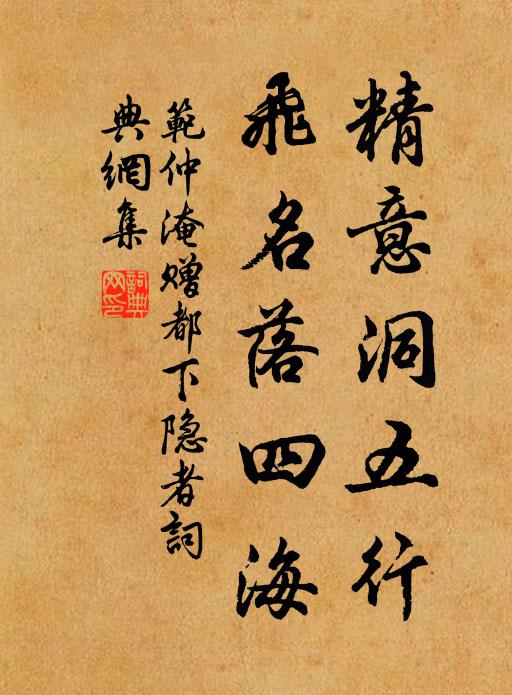 精意洞五行
飛名落四海
範仲淹赠都下隐者詞
典網集
詞典網印